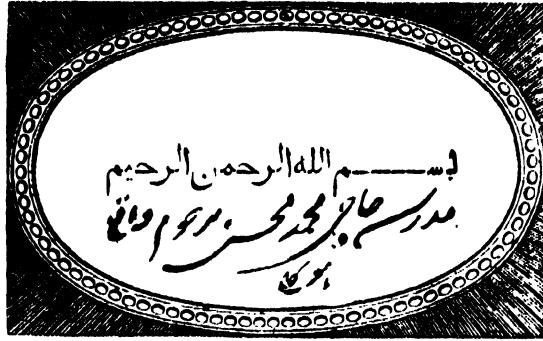 بســـــم الله الرحمن الرحیم
مدرسه حاجی محمد محسن مرحوم واقع
ہوگلی